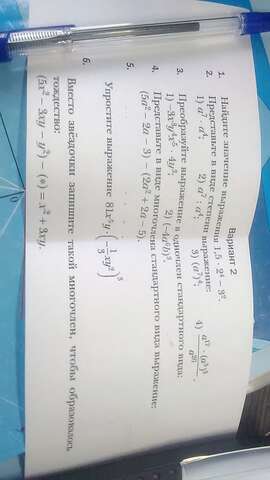 Вариант 2
1. Найдите значение выражения 1,5 · 2⁴ − 3².
2. Представьте в виде степени выражение:
1) a⁷ · a⁴; 2) a⁷ : a⁴; 3) (a⁷)⁴; 4)
3. Преобразуйте выражение в одночлен стандартного вида:
1) −3x³y⁴x⁵ · 4y³; 2) (−4a⁶b)³.
4. Представьте в виде многочлена стандартного вида выражение:
(5a² − 2a − 3) − (2a² + 2a − 5).
5. Упростите выражение 81x⁵y · (−1/3 xy²)³
6. Вместо звёздочки запишите такой многочлен, чтобы образовалось
тождество:
(5x² − 3xy − y²) − (*) = x² + 3xy.